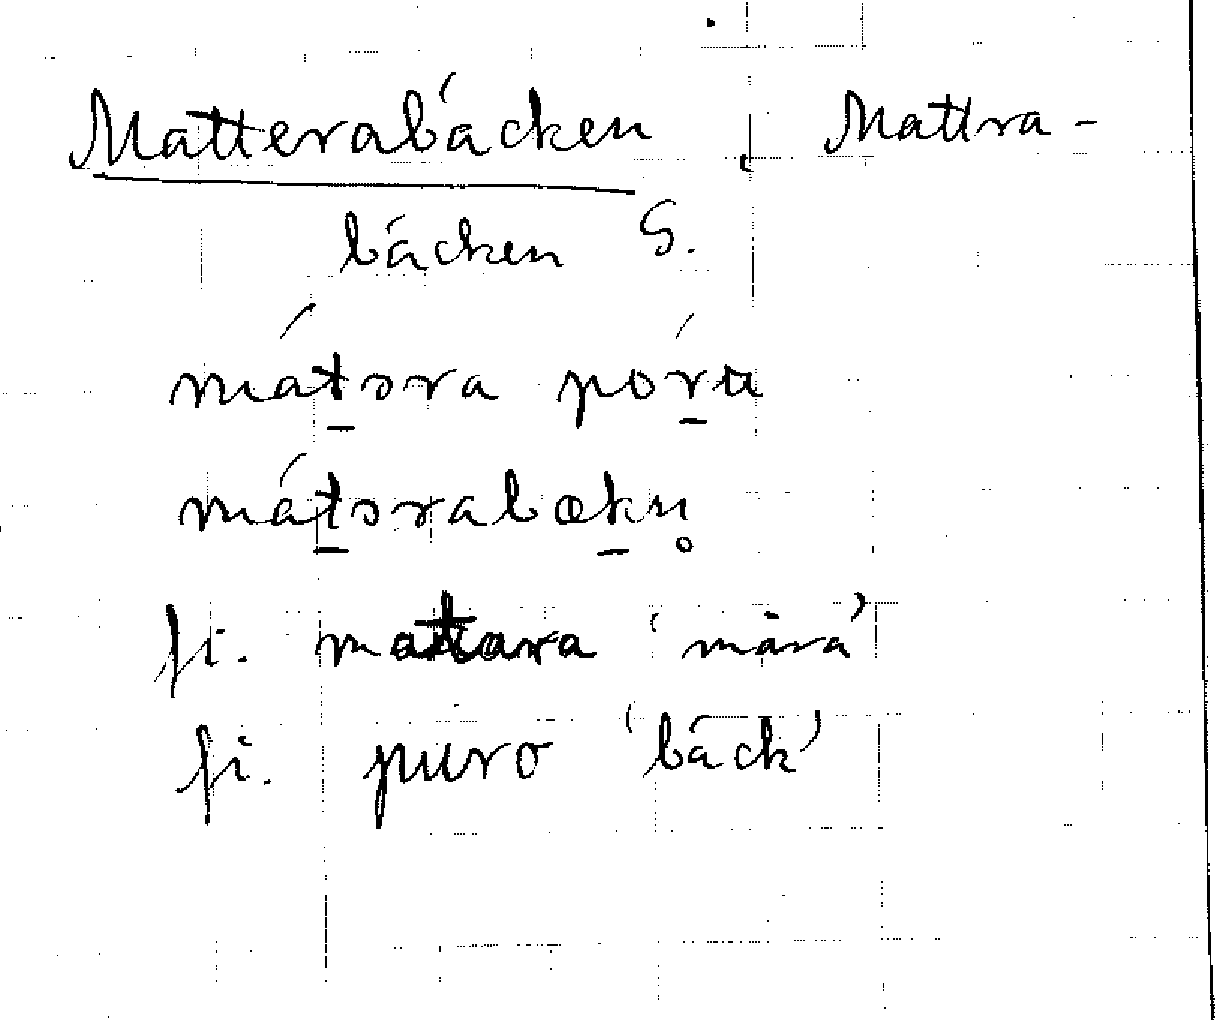 Matterabäcken, Mattra-
bäcken S.
mát̲ɔra pór̲u
mát̲ɔrabæk̲n̥
fi. mattara 'måra'
fi. puro 'bäck'